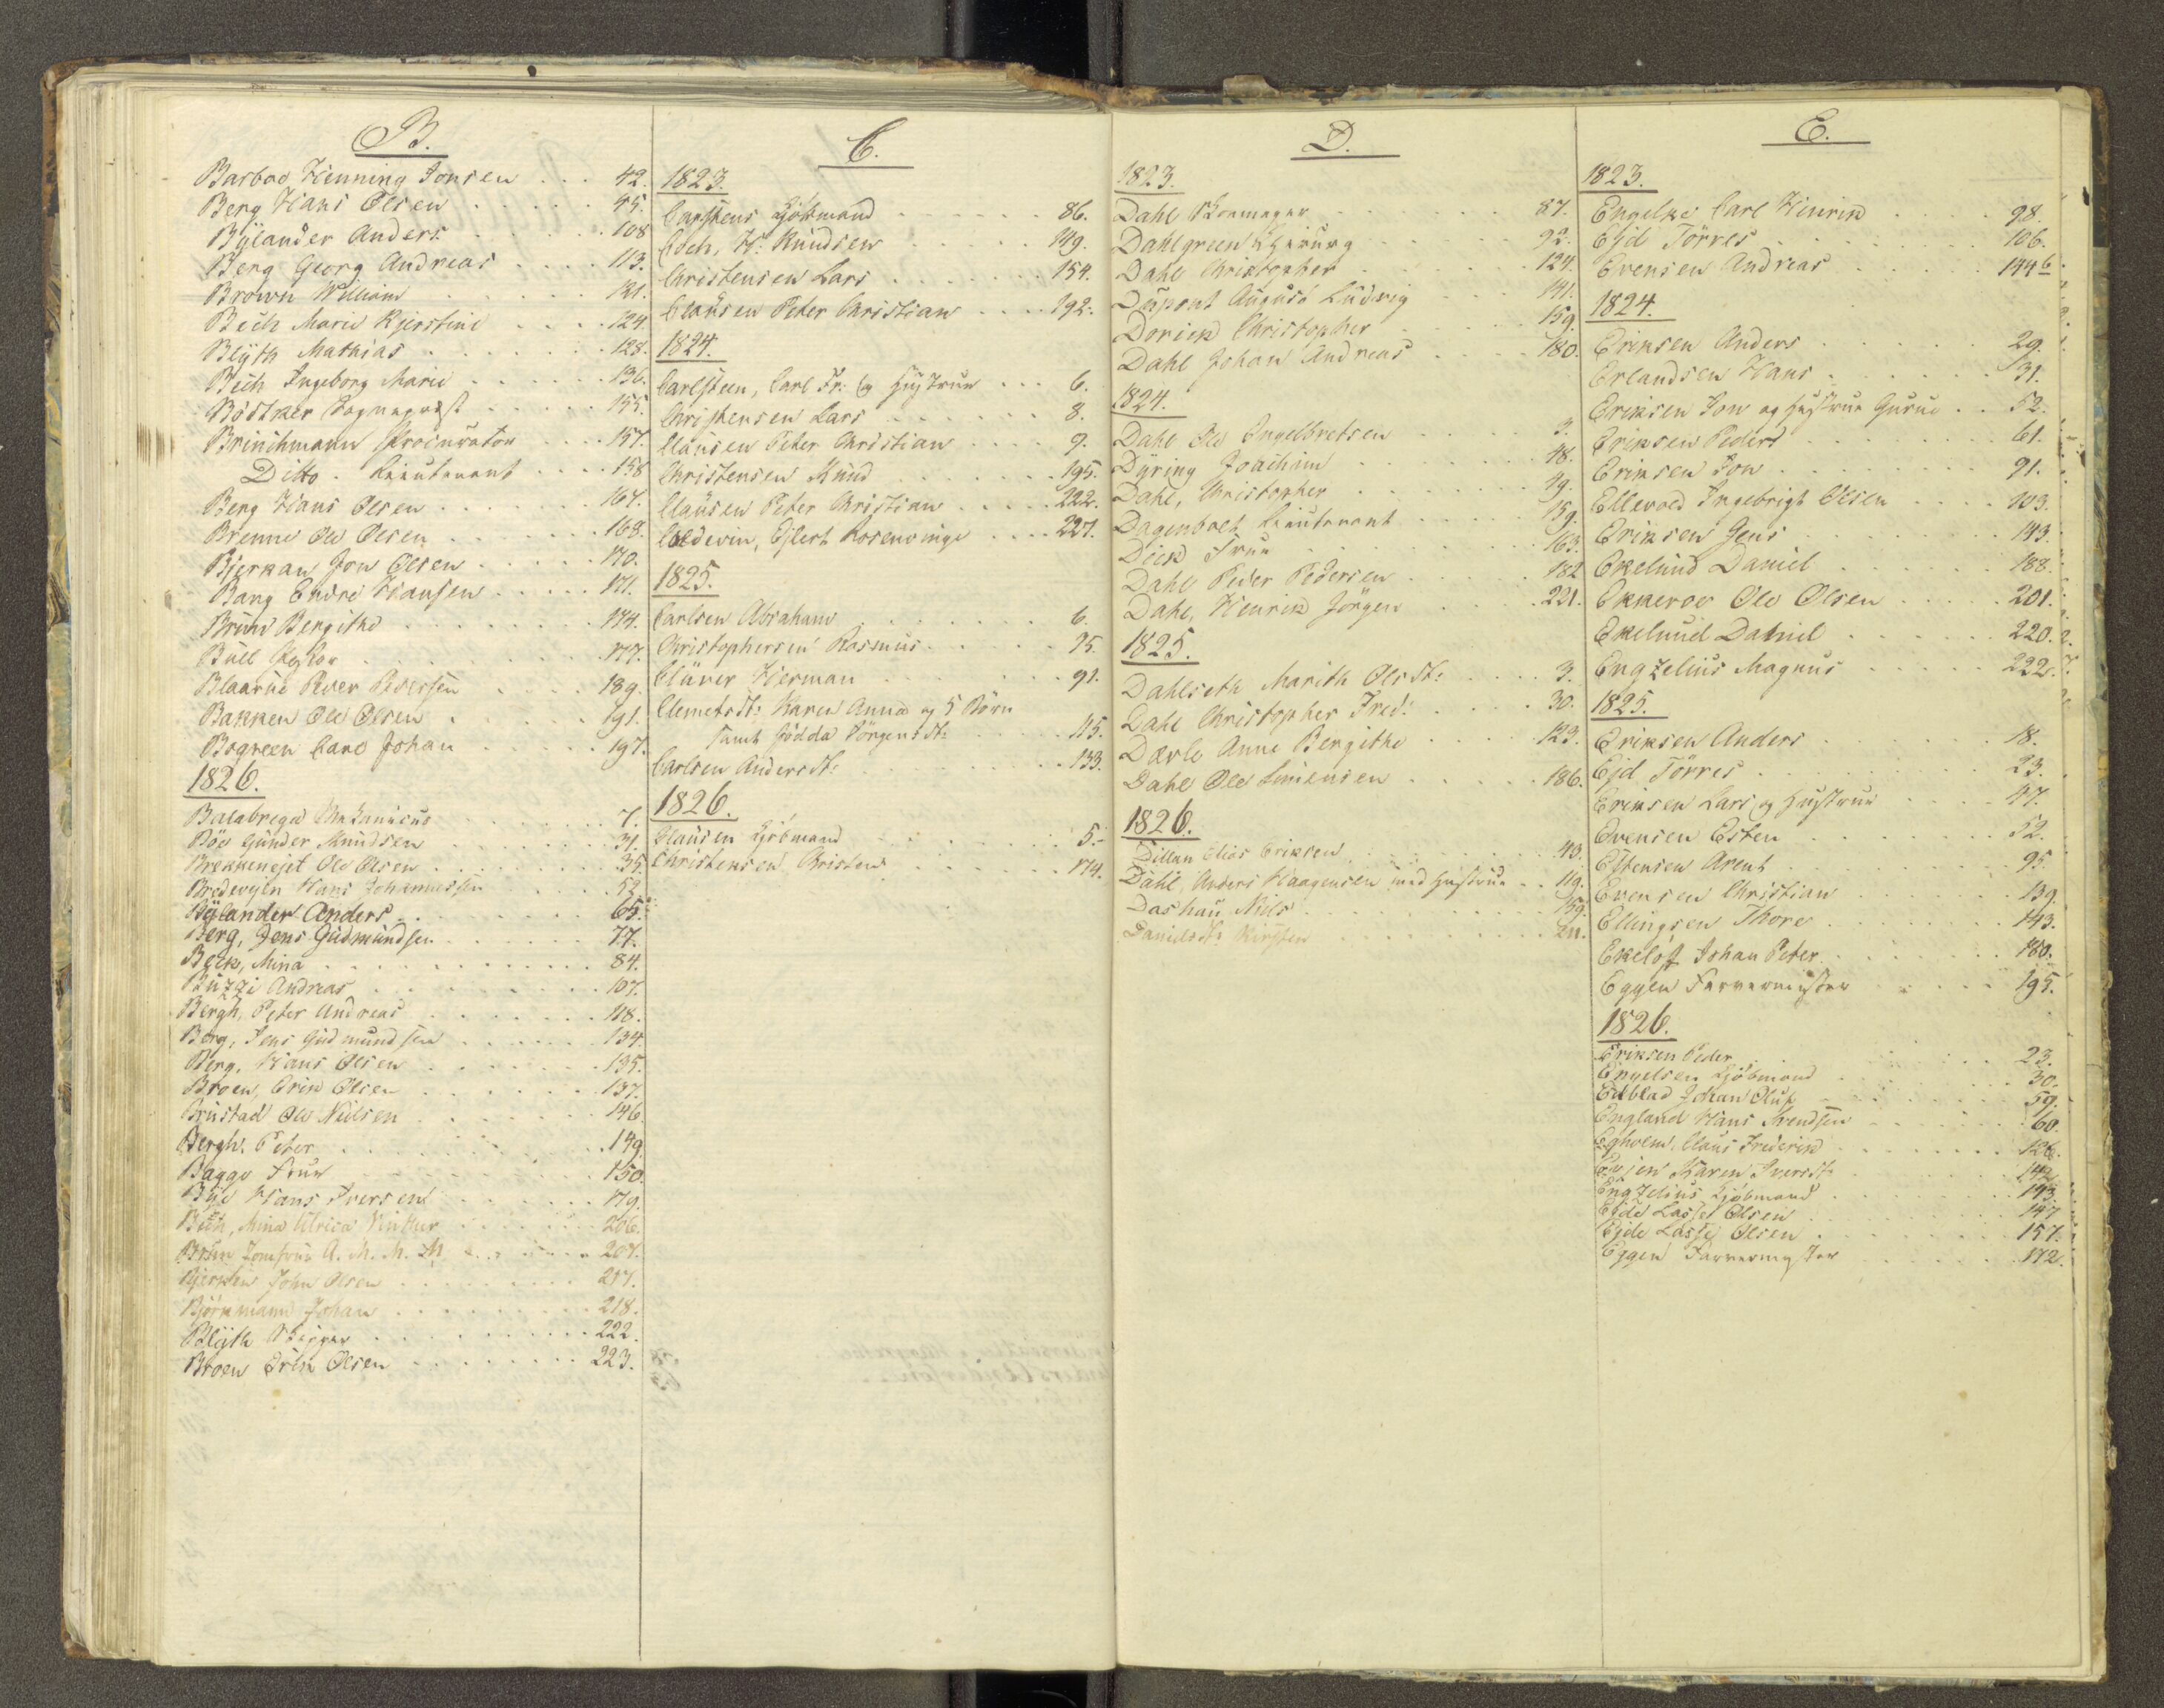 B.
Barboe Henning Jonsen . . . 42.
Berg Hans Olsen . . . 45.
Bylander Anders . . . 108
Berg Georg Andreas . . . 113.
Brown William . . . 121.
Bech Marie Kjerstine . . . 124.
Blyth Mathias . . . 128.
Bech Ingeborg Marie . . . 136.
Böstker . . . 155.
Brinchmann Procurator . . . 157.
Ditto . Lieutenant . . . 158
Berg Hans Olsen . . . 164.
Brenne Ole Olsen . . . 168.
Bjerkan Jon Olsen . . . 170.
Bang Endre Hansen . . . 171.
Bruun Bergithe . . . 174.
Bull . . . 177.
Blaarue Peder Pedersen . . . 189.
Bakken Ole Olsen . . . 191.
Bogreen Carl Johan . . . 197.
1826.
Balabrega . . . 7.
Böe Gunder Knudsen . . . 31.
Brekkenejet Ole Olsen . . . 35.
Hans Johannessen . . . 52.
Bylander Anders . . . 65.
Berg, Jens Gudmundsen . . . 77.
Beck, Mina . . . 84.
Buzzi Andreas . . . 107.
Bergh, Peter Andreas . . . 118.
Berg, Jens Gudmundsen . . . 134.
Berg, Hans Olsen . . . 135.
Broen, Erik Olsen . . . 137.
Brustad Ole Nielsen . . . 146.
Bergh, Peter . . . 149.
Bagge Frue . . . 150.
Bye Hans Iversen . . . 179.
Beck, Mina Ulrica . . . 206.
Bruun Jomfrue A. M. M. M. . . . 207.
John Olsen . . . 217.
Björkmann Johan . . . 218.
Blyth Skipper . . . 222.
Broen Erik Olsen . . . 223.
C.
1823.
Carstens Kjöbmand . . . 86.
Coch, H: Knudsen . . . 149.
Christensen Lars . . . 154.
Clausen Peter Christian . . . 192.
1824.
Carlsteen, Carl Fr: og Hustrue . . . 6.
Christensen Lars . . . 8.
Clausen Peter Christian . . . 9.
Christensen Knud . . . 195.
Clausen Peter Christian . . . 222.
Coldevin, Eilert Rosenvinge . . . 227.
1825.
Carlsen Abraham . . . 6.
Christophersen Rasmus . . . 75.
Clüver Herman . . . 91.
Clemetsdt: Karen Anna og 5 Börn
samt Jödda Jörgensdt: . . . 115.
Carlsen Andersdt: . . . 133.
1826.
Clausen Kjöbmand . . . 5.
Christensen Christen . . . 174.
D.
1823.
Dahl Skomager . . . 87.
Dahlgreen Chirurg . . . 92.
Dahl Christopher . . . 124.
Dupont August Ludvig . . . 141.
Dorick Christopher . . . 159.
Dahl Johan Andreas . . . 180.
1824.
Dahl Ole Engelbretsen . . . 3.
Dyring Joachim . . . 18.
Dahl, Christopher . . . 49.
Dagenbolt Lieutenant . . . 159.
Dick Frue . . . 163.
Dahl Peder Pedersen . . . 182
Dahl, Henrik Jörgen . . . 221.
1825.
Dahlseth Marith Olsdt: . . . 3.
Dahl Christopher Fred: . . . 30.
Dærle Anne Bergithe . . . 123.
Dahl Ole Simensen . . . 186.
1826.
Dillan Elias Eriksen . . . 43.
Dahl, Anders Haagensen med Hustrue . . . 119.
Daskau Nils . . . 159.
Danielsdt: Kirsten . . . 211.
E.
1823.
Engelke Carl Hinrik . . . 98.
Ejd Törres . . . 106.
Evensen Andreas . . . 144 b.
1824.
Eriksen Anders . . . 29.
Erlandsen Hans . . . 31.
Eriksen Jon og Hustrue Gurue . . . 52.
Eriksen Peder . . . 61.
Eriksen Jon . . . 91.
Ellevold Ingebrigt Olsen . . . 103.
Eriksen Jens . . . 143.
Ekelund Daniel . . . 188.
Ekkeroe Ole Olsen . . . 201.
Ekelund Daniel . . . 220.
Engzelius Magnus . . . 232.
1825.
Eriksen Anders . . . 18.
Ejd Törres . . . 23.
Eriksen Lars og Hustrue . . . 47.
Evensen Esten . . . 52.
Estensen Arent . . . 95.
Evensen Christian . . . 139.
Ellingsen Thore . . . 143.
Ekelöf Johan Peter . . . 180.
Eggen Farvermester . . . 195.
1826.
Eriksen Peder . . . 23.
Engelsen Kjöbmand . . . 30.
Edblad Johan Oluf . . . 59.
England Hans Svendsen . . . 60.
Egholm, Claus Frederik . . . 126.
Evjen Karen Iversdt: . . . 142
Engzelius Kjöbmand . . . 143.
Ejde Lasse Olsen . . . 147
Ejde Lasse Olsen . . . 157.
Eggen Farvermester . . . 172.